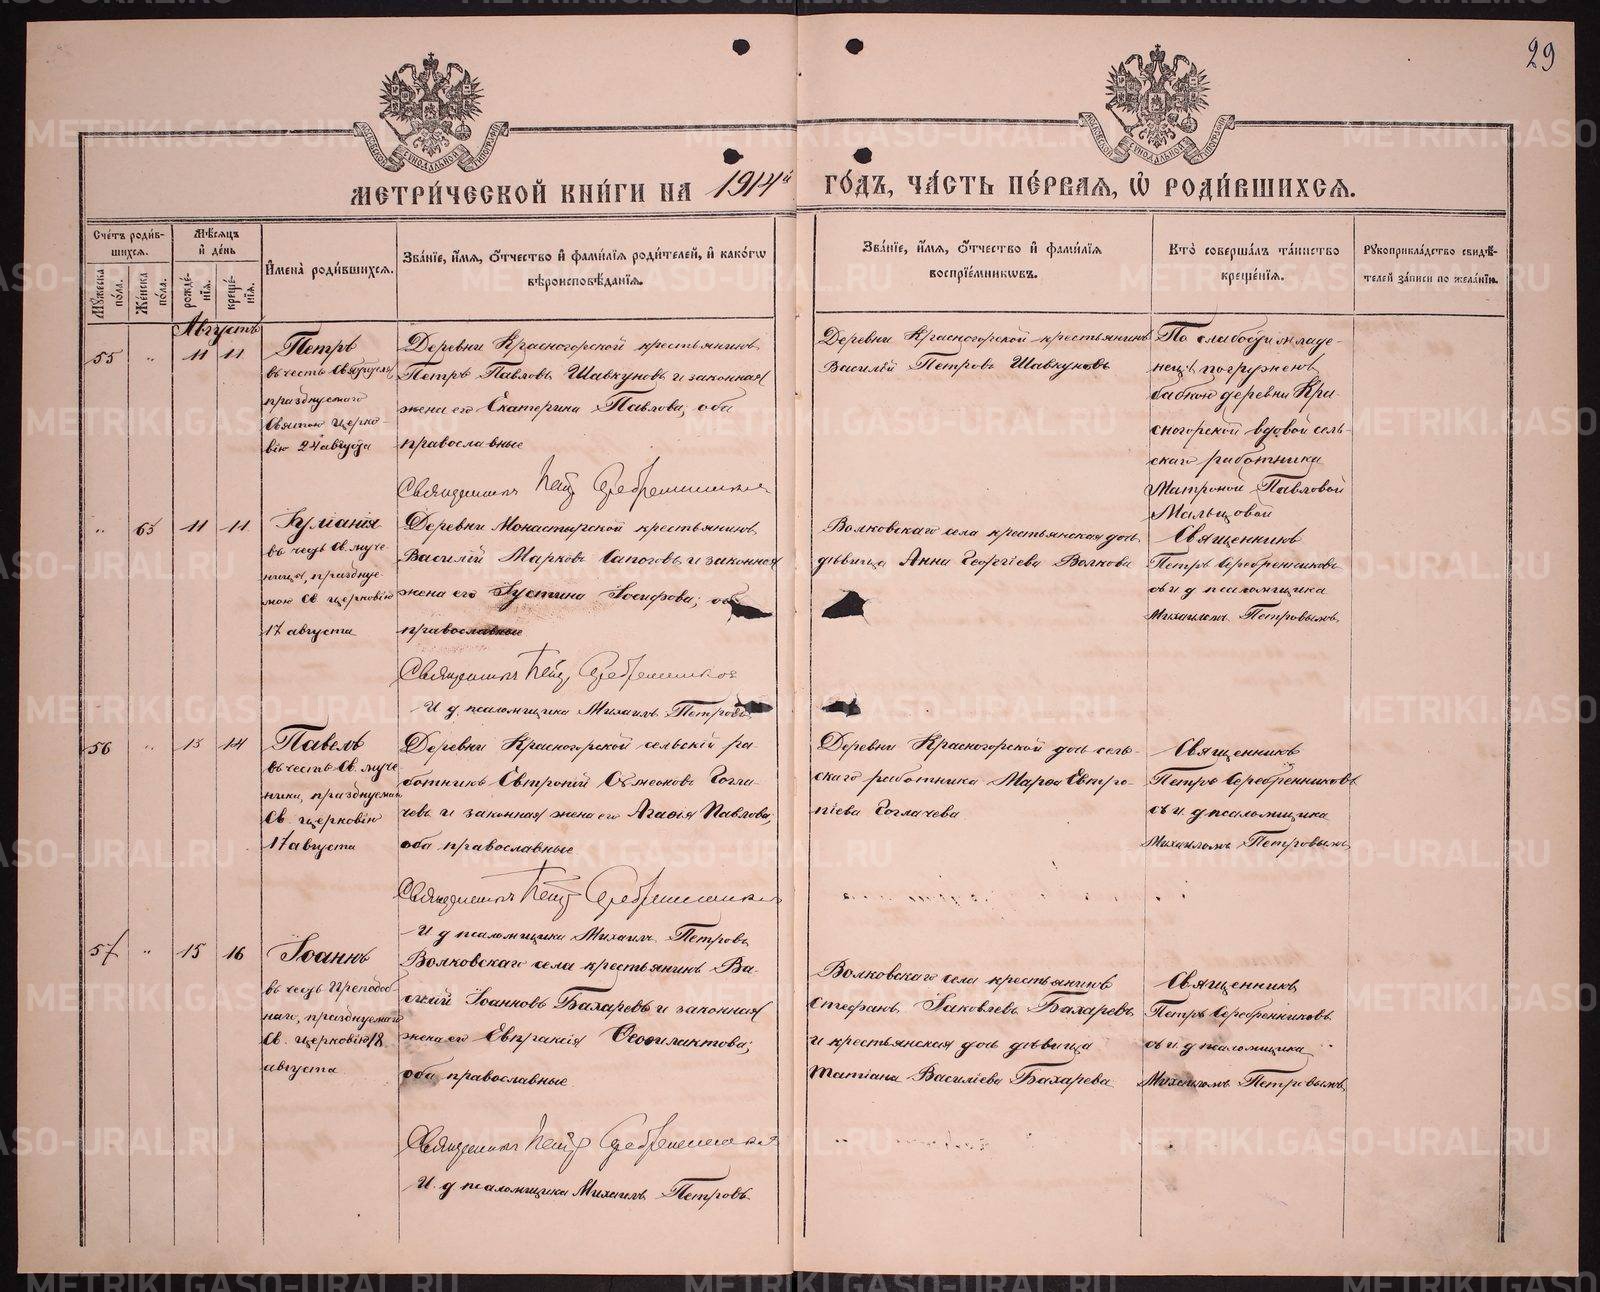 29
МЕТРИ́ЧЕСКОЙ КНИ́ГИ НА 1914й ГО́ДЪ, ЧА́СТЬ ПЕ́РВАЯ, Ѽ РОДИ́ВШИХСЯ.
Сче́тъ роди́в-
шихся.
Му́жеска по́ла.
Же́нска по́ла.
Мѣ́сяцъ
и҆ де́нь
рожде́-
нїя.
креще́-
нїя.
И҆мена̀ роди́вшихся.
Зва́нїе, и҆́мя, о҆́тчество и҆ фами́лїя роди́телей, и҆ како́гѡ
вѣроисповѣ́данїя.
Зва́нїе, и҆́мя, о҆́тчество и҆ фами́лїя
воспрїе́мникѡвъ.
Кто̀ соверша́лъ та́инство
креще́нїя.
Рꙋкоприкла́дство свидѣ́-
телей за́писи по жела́нїю.
Августъ
55 " 11 11
Петръ
въ честь Святителя
празднуемаго
Святою церко-
вію 24 августа
Деревни Красногорской крестьянинъ
Петръ Павловъ Шавкуновъ и законная
жена его Екатерина Павлова, оба
православные
Священникъ Петр Серебренников
Деревни Красногорской крестьянинъ
Василій Петровъ Шавкуновъ
По слабости младе-
нецъ погруженъ
бабкою деревни Кра-
сногорской вдовой сель-
скаго работника
Матроной Павловой
Мальцовой
" 63 11 11
Іуліанія
въ честь Св. муче-
ницы, празднуе-
мой Св. церковію
17 августа
Деревни Монастырской крестьянинъ
Василій Марковъ Сапоговъ и законная
жена его Іустина Іосифова; оба
православные
Священникъ Петр Серебренников
И. д. псаломщика Михаилъ Петровъ
Волковскаго села крестьянская дочь
дѣвица Анна Георгіева Волкова
Священникъ
Петръ Серебренниковъ
съ и д псаломщика
Михаиломъ Петровымъ
56 " 13 14
Павелъ
въ честь Св. муче-
ника, празднуемаго
Св. церковію
17 августа
Деревни Красногорской сельскій ра-
ботникъ Евтропій Сѵмеоновъ Гогла-
чевъ и законная жена его Агафія Павлова,
оба православные
Священникъ Петр Серебренников
И д псаломщика Михаилъ Петровъ
Деревни Красногорской дочь сель-
скаго работника Марѳа Евтро-
піева Гоглачева
Священникъ
Петръ Серебренниковъ
съ и. д псаломщика
Михаиломъ Петровымъ
57 " 15 16
Іоаннъ
въ честь Преподоб-
наго, празднуемаго
Св. церковію 18
августа
Волковскаго села крестьянинъ Ва-
силій Іоанновъ Бахаревъ и законная
жена его Евпраксія Ѳеофилактова;
оба православные
Священникъ Петр Серебренников
И. д псаломщика Михаилъ Петровъ
Волковскаго села крестьянинъ
Стефанъ Іаковлевъ Бахаревъ
и крестьянская дочь дѣвица
Татіана Василіева Бахарева
Священникъ
Петръ Серебренниковъ
съ и. д псаломщика
Михаиломъ Петровымъ
METRIKI.GASO-URAL.RU